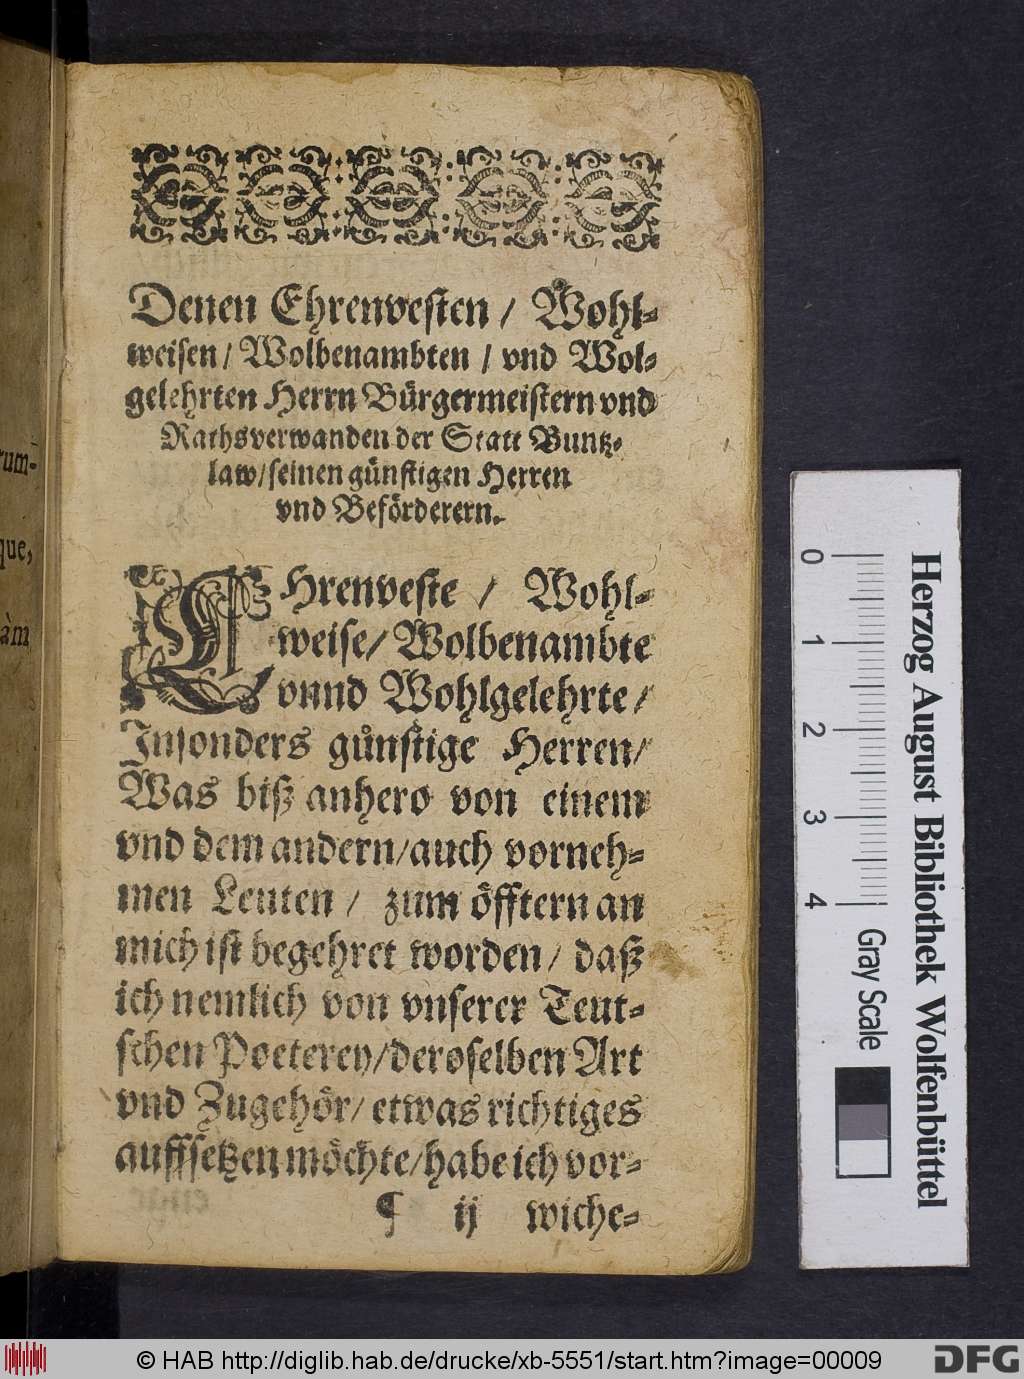 Denen Ehrenvesten / Wohl-
weisen / Wolbenambten / vnd Wol-
gelehrten Herrn Bürgermeistern vnd
Rathsverwanden der Statt Buntz-
law / seinen günstigen Herren
vnd Beförderern.
EHrenveste / Wohl-
weise / Wolbenambte
vnnd Wohlgelehrte /
Insonders günstige Herren /
Was biß anhero von einem
vnd dem andern / auch vorneh-
men Leuten / zum öfftern an
mich ist begehret worden / daß
ich nemlich von vnserer Teut-
schen Poeterey / deroselben Art
vnd Zugehör / etwas richtiges
auffsetzen möchte / habe ich vor-
¶ ij wiche-
rum-
que,
àm
0 1 2 3 4
Gray Scale
Herzog August Bibliothek Wolfenbüttel
© HAB http://diglib.hab.de/drucke/xb-5551/start.htm?image=00009
DFG